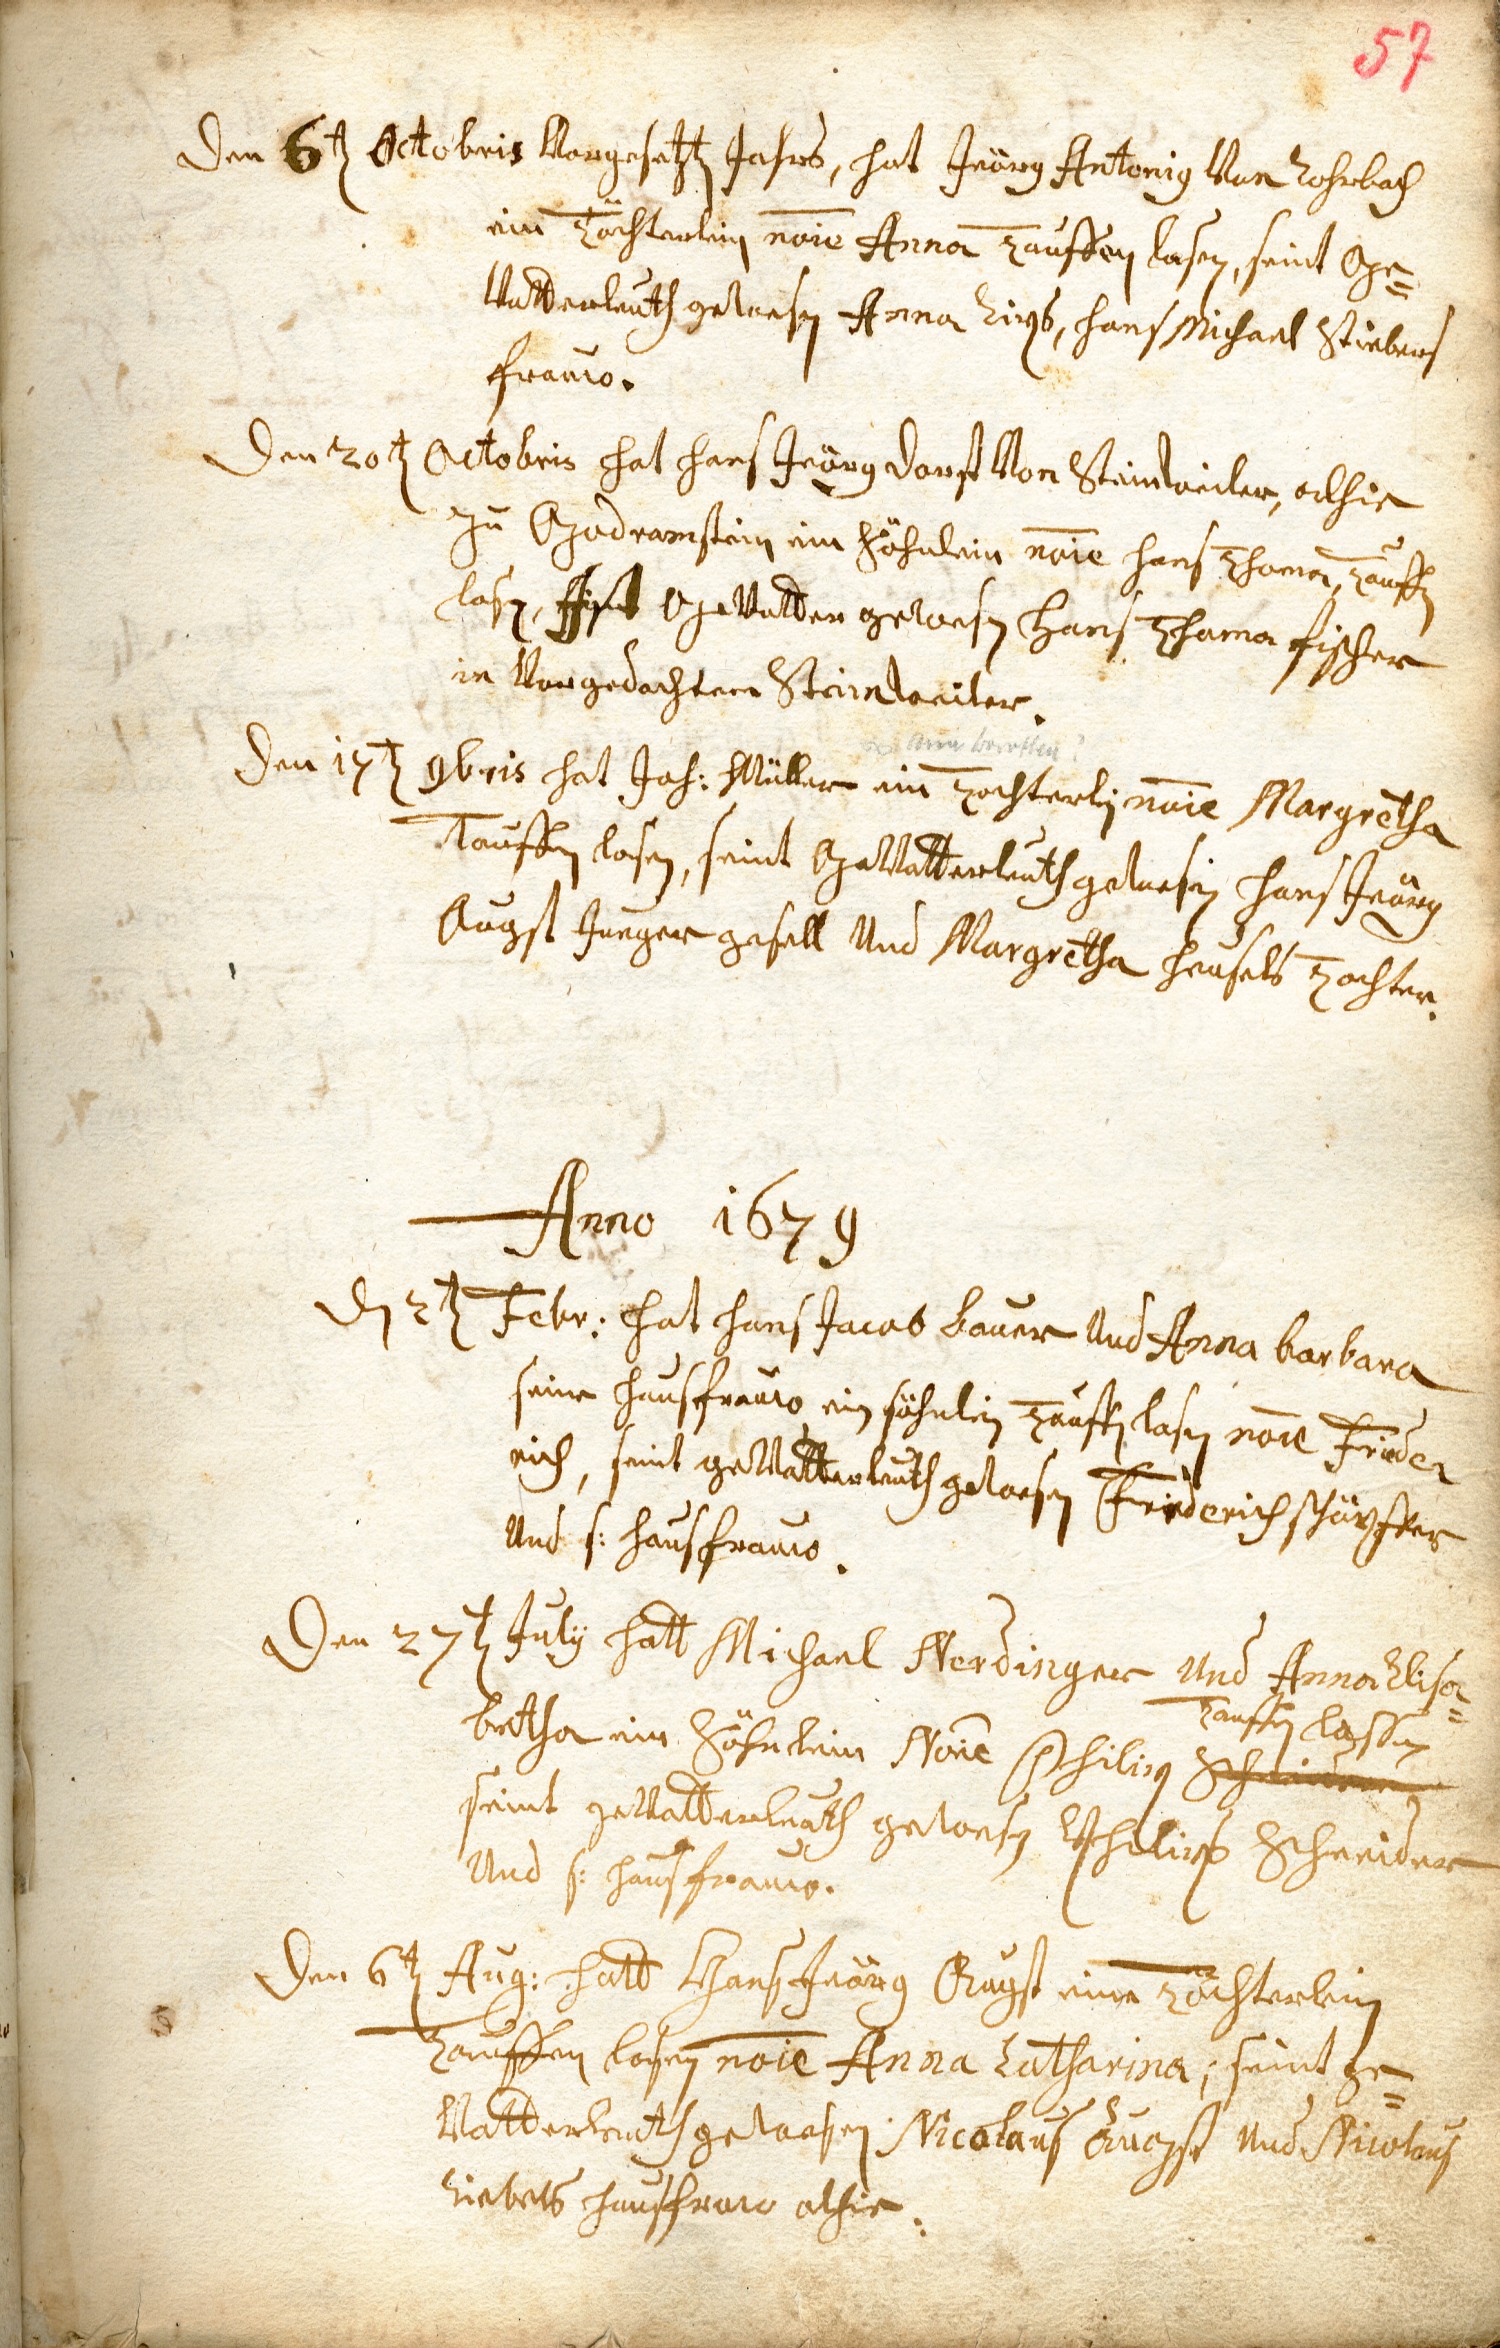 57
Den 6t Octobris Vorgesetzt Jahrs, hat Jeörg Antonig Von Rohrbach
ein Töchterlein noie Anna Tauffen lasen, seint Ge=
Vatterleuth gewesen Anna, hans Michael Stiebers
frauw.
Den 20t Octobris hat hans Jeörg Dorst Von Steinweiler, alhie
zu Godramstein ein Söhnlein noie hans Thoma, Tauffen
lasen, Ist GeVatter gewesen Hans Thoma fischer
in Vorgedachtem Steinweiler.
Den 17t 9bris hat Joh: Müller ein Tochterlein noie Margretha
Tauffen lasen, seint GeVatterleuth gewesen hans Jeörg
Augst Junger gesell Und Margretha hensels Tochter.
Anno 1679
Den 2t Febr: hat hans Jacob bauer Und Anna barbara
seine hausfrauw ein söhnlein Tauffen lasen noie Frider
rich, seint geVatterleuth gewesen Friderich schärffer
Und s: hausfrauw.
Den 27t July hatt Michael Nerdinger Und Anna Elisa=
Tauffen lassen
betha ein Söhnlein Noie Philips Schneider
seint geVatterleuth gewesen Philips Schneider
Und s: hausfrauw.
Den 6t Aug: hatt Hans Jeörg Augst einn Töchterlein
Tauffen lasen noie Anna Catharina, seint ge=
Vatterleuth gewesen Nicolaus Augst Und Nicolaus
Liebels hausfraw alhie.